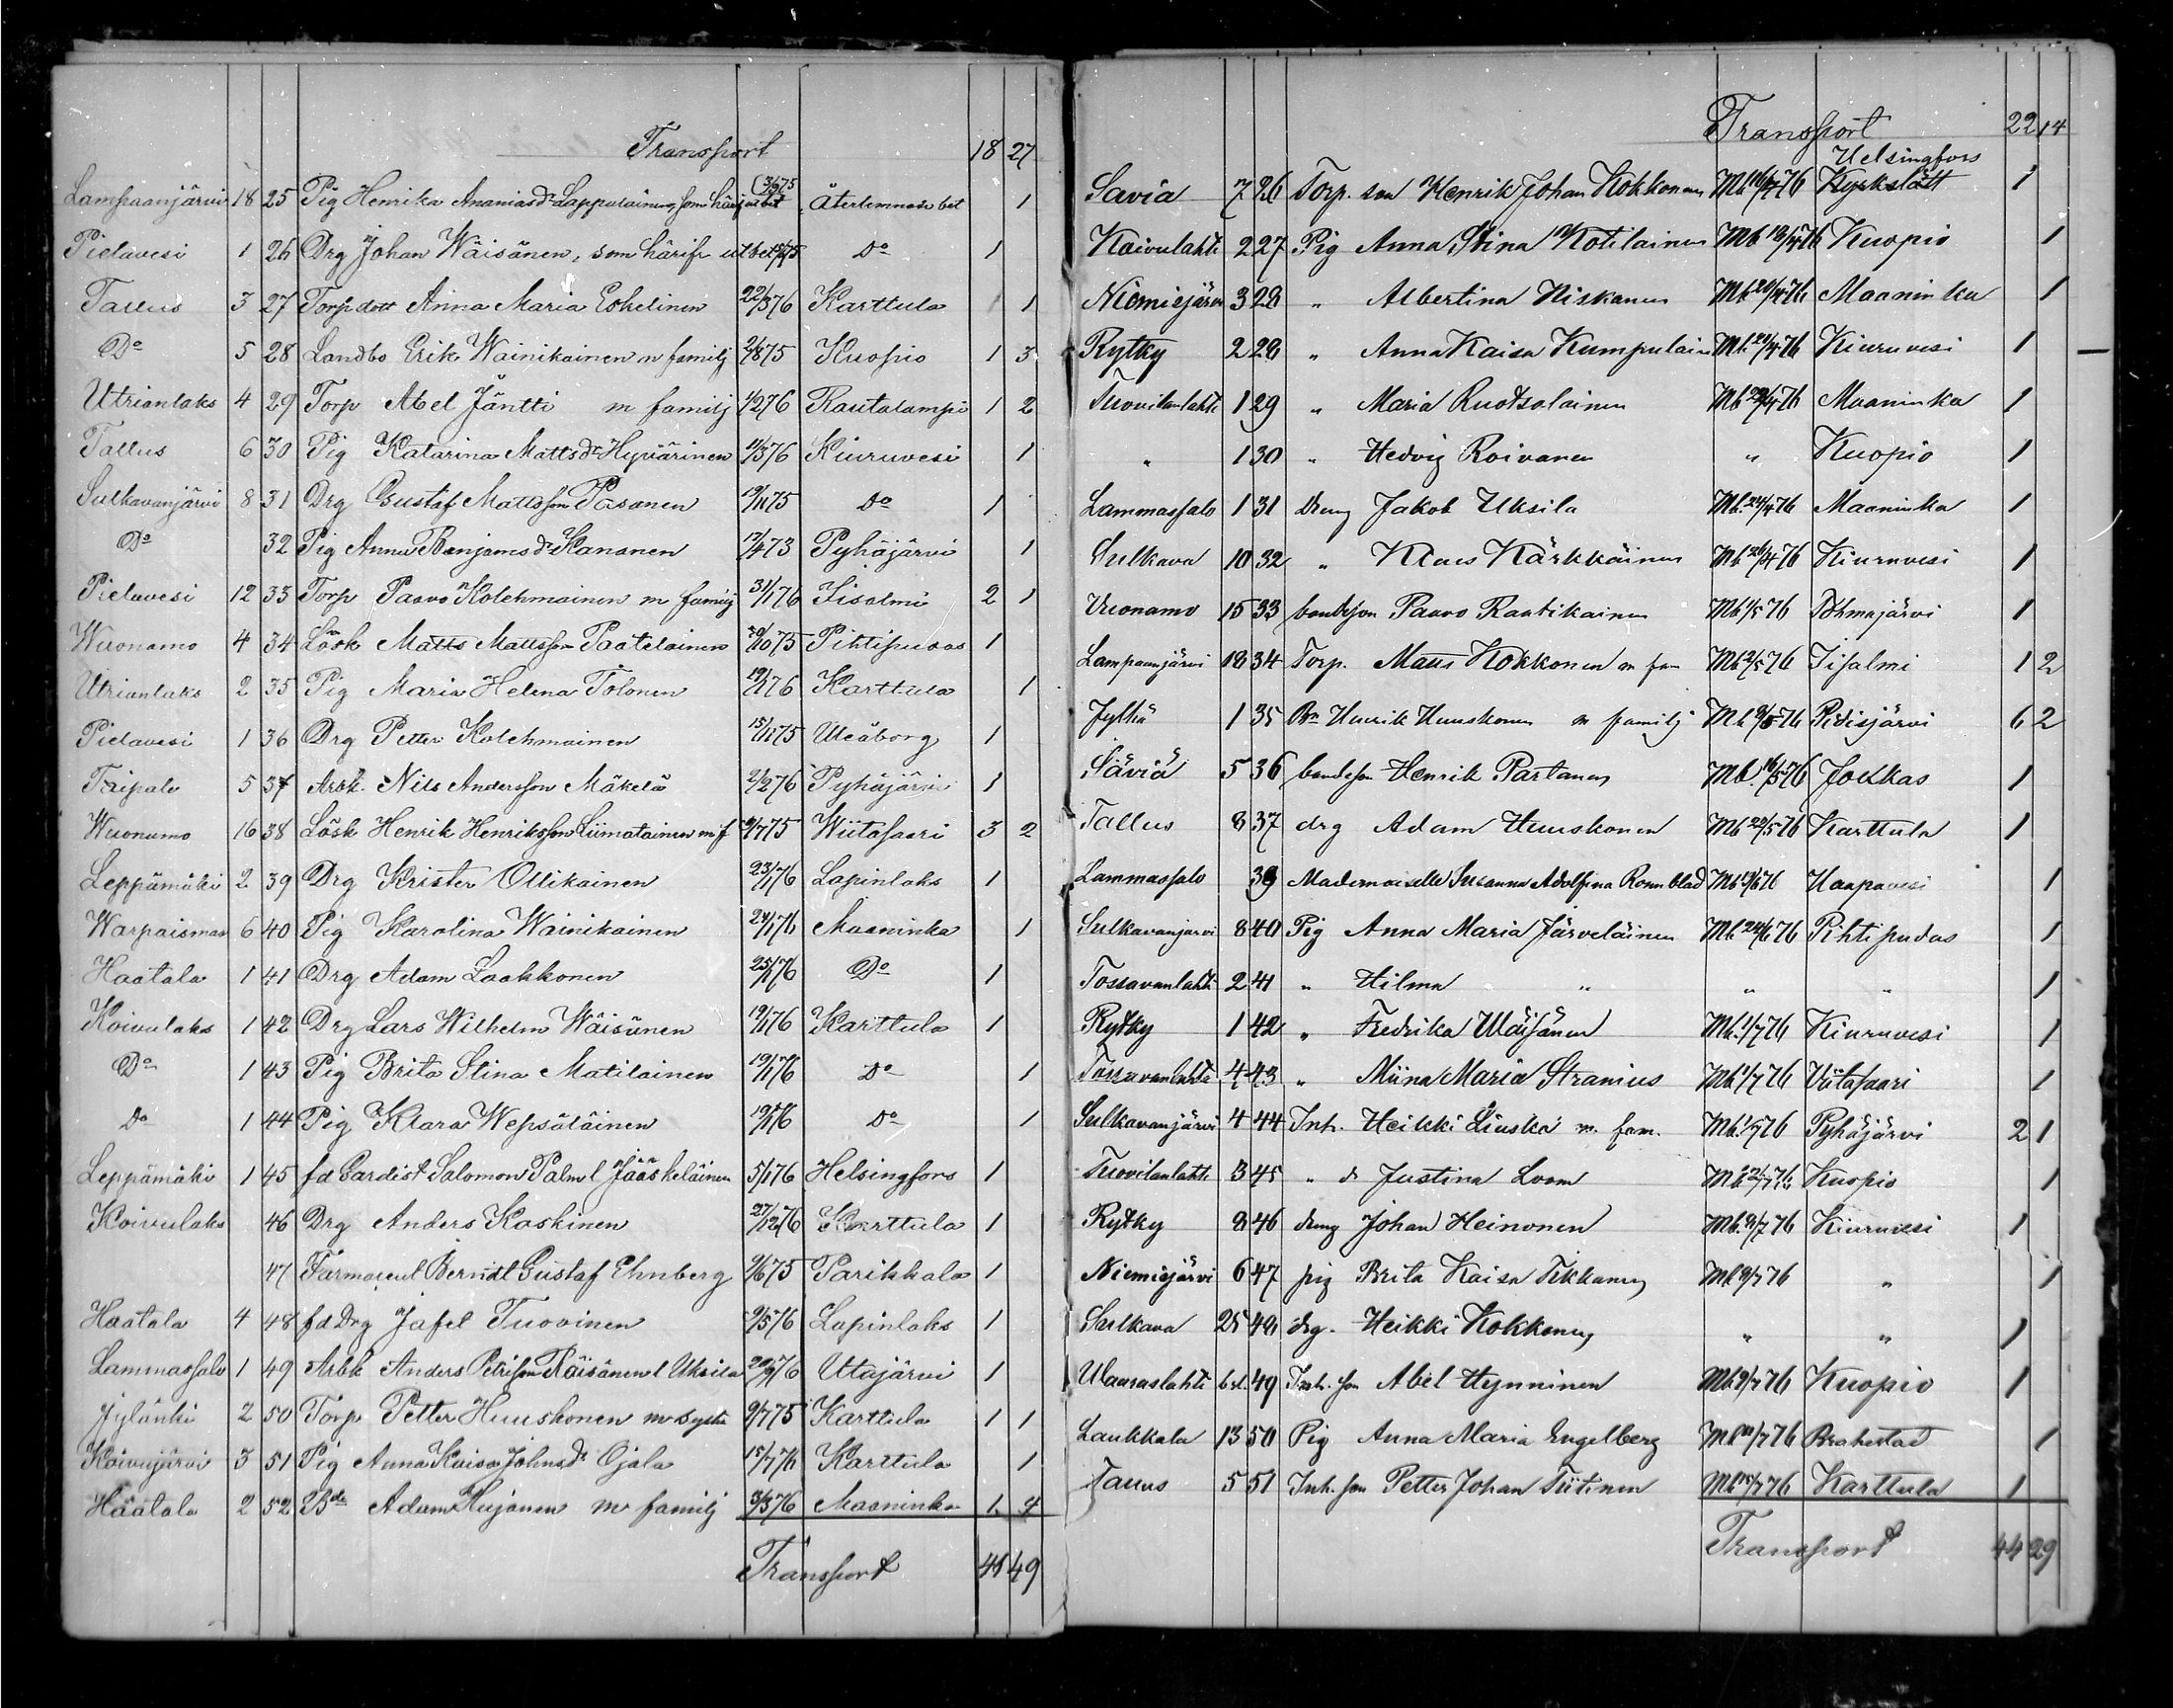 Transport 18 27
Lampaanjärvi 18 25 Pig Henrika Ananiasdr Lappalainen, som härifr utbet återlemnade bet 1
Pielavesi 1 26 Drg Johan Wäisänen, som härifr utbet Do 1
Tallus 3 27 Torp dott Anna Maria Eskelinen 22/3 76 Karttula 1
Do 5 28 Landbo Erik Wainikainen m familj 2/8 75 Kuopio 1 3
Utrianlaks 4 29 Torp Abel Jäntti m familj 1/2 76 Rautalampi 1 2
Tallus 6 30 Pig Katarina Mattsdr Hyvärinen 11/3 76 Kiuruvesi 1
Sulkavanjärvi 8 31 Drg Gustaf Mattsson Pasanen 19/11 75 Do 1
Do 32 Pig Anna Benjamsdr Kananen 13/4 73 Pyhäjärvi 1
Pielavesi 12 33 Torp Paavo Kolehmainen m familj 31/1 76 Iisalmi 2 1
Wuonamo 4 34 Lösk Matts Mattsson Paatelainen 20/10 75 Pihtipudas 1
Utrianlaks 2 35 Pig Maria Helena Tolonen 19/1 76 Karttula 1
Pielavesi 1 36 Drg Petter Kolehmainen 15/11 75 Uleåborg 1
Taipale 5 37 Arbk. Nils Andersson Mäkelä 2/2 76 Pyhäjärvi 1
Wuonamo 16 38 Lösk Henrik Henriksson Liimatainen m f 9/7 75 Wiitasaari 3 2
Leppämäki 2 39 Drg Krister Ollikainen 23/1 76 Lapinlaks 1
Warpaismaa 6 40 Pig Karolina Wainikainen 24/1 76 Maaninka 1
Haatala 1 41 Drg Adam Laakkonen 25/1 76 Do 1
Koivulaks 1 42 Drg Lars Wilhelm Wäisänen 19/1 76 Karttula 1
Do 1 43 Pig Brita Stina Matilainen 19/1 76 Do 1
Do 1 44 Pig Klara Wepsäläinen 19/1 76 Do 1
Leppämäki 1 45 fd Gardist Salomon Palm l Jääskeläinen 5/1 76 Helsingfors 1
Koivulaks 46 Drg Anders Koskinen 27/12 76 Karttula 1
47 Farmaceut Berndt Gustaf Ehnberg 9/6 75 Parikkala 1
Haatala 4 48 fd Drg Jafet Tuovinen 9/5 76 Lapinlaks 1
Lammassalo 1 49 Arbk Anders Petrisson Räisänen l Uksila 20/9 76 Utajärvi 1
Jylänki 2 50 Torp Petter Huuskonen m syster 9/7 75 Karttula 1 1
Koivujärvi 3 51 Pig Anna Kaisa Johnsdr Ojala 15/7 76 Karttula 1
Haatala 2 52 Bde Adam Kujanen m familj 3/3 76 Maaninka 1 4
Transport 41 49
Transport 22 14
Helsingfors
Savia 7 26 Torp. son Henrik Johan Kokkonen Mb 10/4 76 Kyrkslätt 1
Koivulahti 2 27 Pig Anna Stina Kotilainen Mb 18/4 76 Kuopio 1
Niemisjärvi 3 28 " Albertina Niskanen Mb 20/4 76 Maaninka 1
Rytky 2 28 " Anna Kaisa Kumpulain Mb. 20/4 76 Kiuruvesi 1
Tuovilanlahti 1 29 " Maria Ruotsalainen Mb 22/4 76 Maaninka 1
" 1 30 " Hedvig Roivanen " Kuopio 1
Lammassalo 1 31 Dreng Jakob Uksila Mb. 24/4 76 Maaninka 1
Sulkava 10 32 " Klaes Kärkkäinen Mb 26/4 76 Kiuruvesi 1
Vuonamo 15 33 bondeson Paavo Raatikainen Mb 1/5 76 Tohmajärvi 1
Lampaanjärvi 18 34 Torp. Maus Kokkonen m fam Mb 2/5 76 Iisalmi 1 2
Jylhä 1 35 Bn Henrik Huuskonen m familj Mb 9/5 76 Pidisjärvi 6 2
Säviä 5 36 bondeson Henrik Partanen Mb. 16/5 76 Jokkas 1
Tallus 8 37 drg Adam Huuskonen Mb 22/5 76 Karttula 1
Lammassalo 39 Mademoiselle Susanna Adolfina Ronnblad Mb 13/6 76 Haapavesi 1
Sulkavanjarvi 8 40 Pig Anna Maria Järveläinen Mb 24/6 76 Pihtipudas 1
Tossavanlahti 2 41 " Hilma " " " 1
Rytky 1 42 " Fredrika Wäisänen Mb. 1/7 76 Kiuruvesi 1
Tossavanlahti 4 43 " Miina Maria Stranius Mb 1/7 76 Viitasaari 1
Sulkavanjärvi 4 44 Inh. Heikki Liuska m. fam. Mb. 1/7 76 Pyhäjärvi 2 1
Tuovilanlahti 3 45 " d Justina Loom Mb 2/7 76 Kuopio 1
Rytky 8 46 dreng Johan Heinonen Mb. 9/7 76 Kiuruvesi 1
Niemisjärvi 6 47 pig Brita Kaisa Tikkanen Mb 9/7 76 " 1
Sulkava 25 48 drg. Heikki Kokkonen " " 1
Waaraslahti 49 Inh. son Abel Hynninen Mb 9/7 76 Kuopio 1
Laukkala 13 50 Pig Anna Maria Engelberg Mb 10/7 76 Brahestad 1
Tallus 5 51 Inh. son Petter Johan Tiitinen Mb 15/7 76 Karttula 1
Transport 44 29